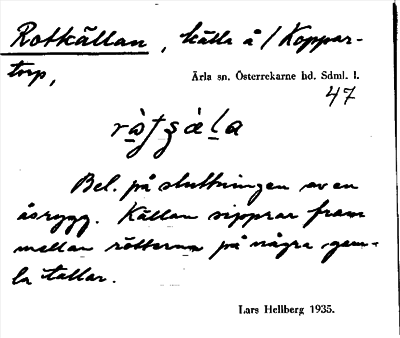 Rotkällan, källa å / Koppar-
torp,
Ärla sn. Österrekarne hd. Sdml. l.
47
Bel. på sluttningen av en
åsrygg. Källan sipprar fram
mellan rötterna på några gam-
la tallar.
Lars Hellberg 1935.